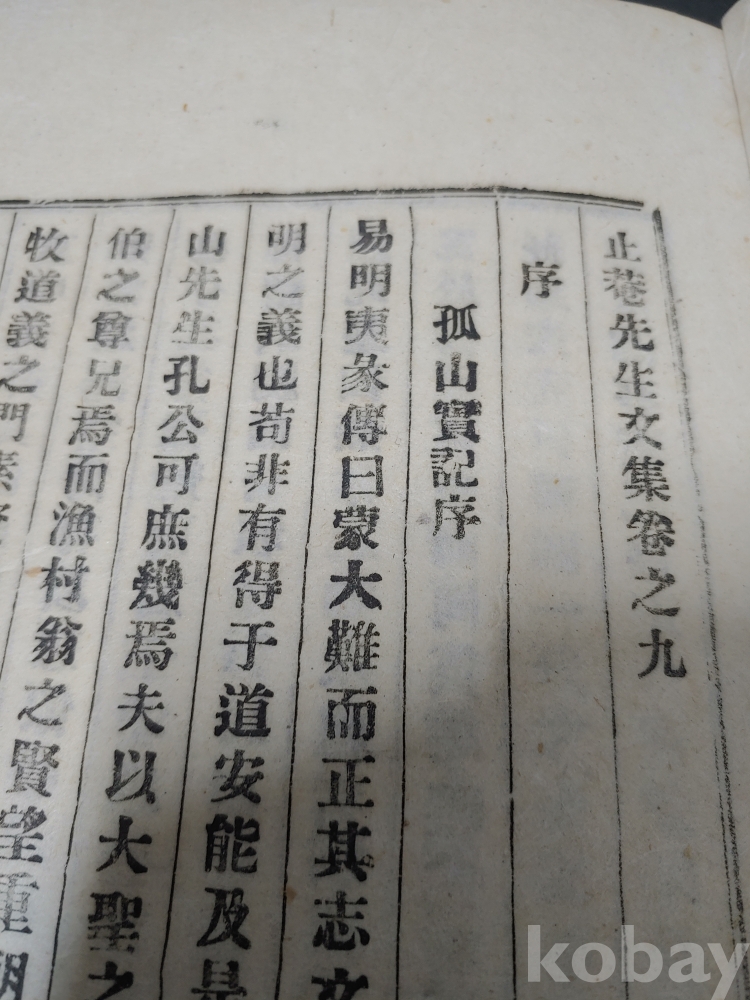 止菴先生文集卷之九
序
孤山實記序
易明夷彖傳曰蒙大難而正其志文
明之義也苟非有得于道安能及是
山先生孔公可庶幾焉夫以大聖之
伯之尊兄焉而漁村翁之賢望重朝
牧道義之門素
kobay